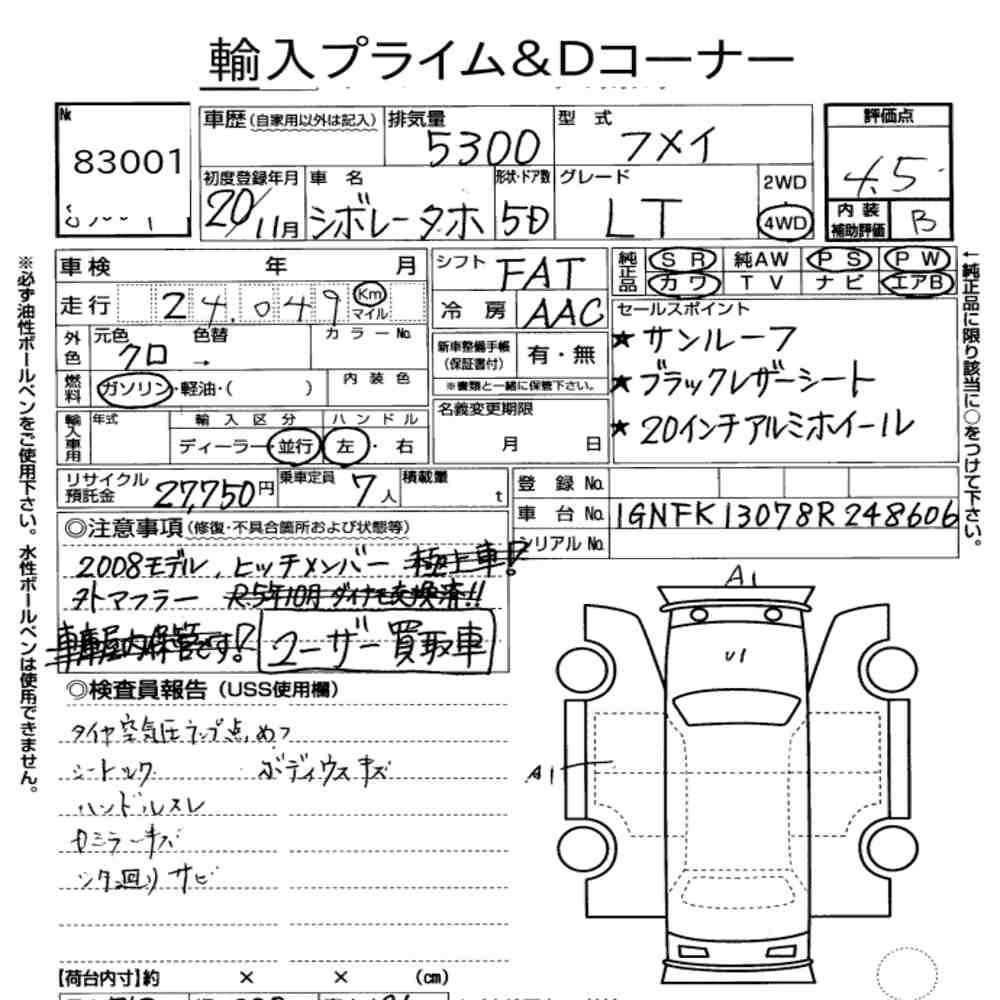 輸入プライム&Dコーナー
№ 83001
車歴 (自家用以外は記入) 排気量 5300 型式 フメイ 評価点 4.5
初度登録年月 20/11月 車名 シボレータホ 形状・ドア数 5D グレード LT 2WD 4WD 内装補助評価 B
車検 年 月 シフト FAT 純正品 SR 純AW PS PW
カワ TV ナビ エアB
走行 24.049 Km マイル 冷房 AAC セールスポイント
外色 元色 クロ 色替 → カラーNo. 新車整備手帳 (保証書付) 有・無
★サンルーフ
燃料 ガソリン・軽油・( ) 内装色 ※書類と一緒に保管下さい。
★ブラックレザーシート
輸入車用 年式 輸入区分 ハンドル 名義変更期限
ディーラー・並行 左・右 月 日
★20インチアルミホイール
リサイクル預託金 27,750円 乗車定員 7人 積載量 t 登録No.
車台No. 1GNFK13078R248606
シリアルNo.
◎注意事項(修復・不具合箇所および状態等)
2008モデル, ヒッチメンバー 極上車!?
ヲトマフラー R.5年10月 ダイナモ交換済!!
車庫屋内保管です! ユーザー買取車
◎検査員報告(USS使用欄)
タイヤ空気圧ランプ点めつ
シート ボディウスキズ
ハンドルスレ
ミラーキズ
シタ廻りサビ
【荷台内寸】約 × × (cm)
A1
U1
A1
※必ず油性ボールペンをご使用下さい。水性ボールペンは使用できません。
←純正品に限り該当に○をつけて下さい。